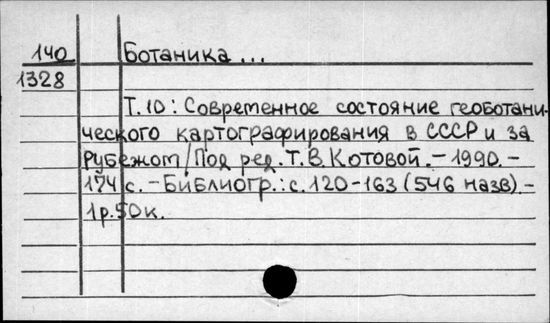 140 Ботаника ...
1328
Т.10: Современное состояние геоботани-
ческого картографирования в СССР и за
рубежом / Под ред. Т.В. Котовой. – 1990. –
174 с. – Библиогр.: с. 120-163 (546 назв). –
1р.50к.